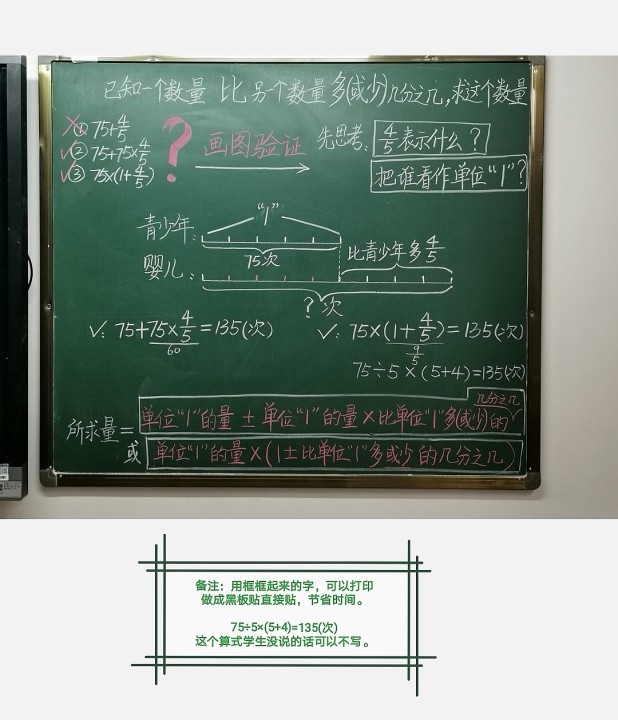 已知一个数量比另一个数量多(或少)几分之几,求这个数量
×① 75+4/5
√② 75+75×4/5
√③ 75×(1+4/5)
?
画图验证
先思考:
4/5表示什么?
把谁看作单位“1”?
“1”
青少年:
75次
比青少年多4/5
婴儿:
?次
√: 75+75×4/5=135(次)
60
√: 75×(1+4/5)=135(次)
9/5
75÷5×(5+4)=135(次)
所求量=单位“1”的量±单位“1”的量×比单位“1”多(或少)的几分之几
或 单位“1”的量×(1±比单位“1”多或少的几分之几)
备注:用框框起来的字,可以打印
做成黑板贴直接贴,节省时间。
75÷5×(5+4)=135(次)
这个算式学生没说的话可以不写。